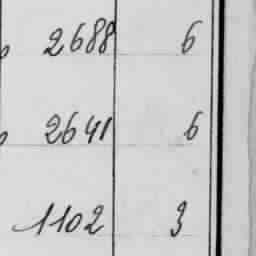 2688 6
2641 6
1102 3